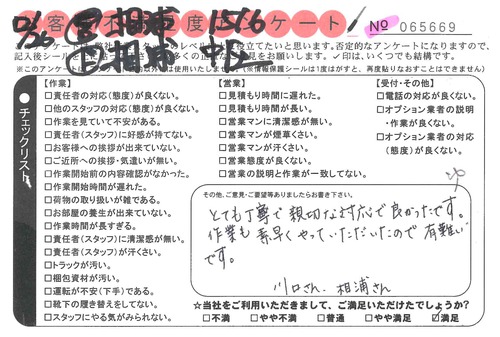 お客様不満度アンケート
№ 065669
10/22 営 相浦 15:6
営 相浦 中
記入後シールを
※このアンケートは
(※情報保護シールは1度はがすと、再度貼りなおすことはできません)
チェックリスト
【作業】
□責任者の対応(態度)が良くない。
□他のスタッフの対応(態度)が良くない。
□作業を見ていて不安がある。
□責任者(スタッフ)に好感が持てない。
□お客様への挨拶が出来ていない。
□ご近所への挨拶・気遣いが無い。
□作業開始前の内容確認がなかった。
□作業開始時間が遅れた。
□荷物の取り扱いが雑である。
□お部屋の養生が出来ていない。
□作業時間が長すぎる。
□責任者(スタッフ)に清潔感が無い。
□責任者(スタッフ)が汗くさい。
□トラックが汚い。
□梱包資材が汚い。
□運転が不安(下手)である。
□靴下の履き替えをしてない。
□スタッフにやる気がみられない。
【営業】
□見積もり時間に遅れた。
□見積もり時間が長い。
□営業マンに清潔感が無い。
□営業マンが煙草くさい。
□営業マンが汗くさい。
□営業態度が良くない。
□営業の説明と作業が一致してない。
【受付・その他】
□電話の対応が良くない。
□オプション業者の説明
・作業が良くない。
□オプション業者の対応
(態度)が良くない。
その他、ご意見・ご要望等ありましたらお書き下さい。
とても丁寧で親切な対応で良かったです。
作業も素早くやっていただいたので有難い
です。
川口さん、相浦さん
☆当社をご利用いただきまして、ご満足いただけたでしょうか?
□不満 □やや不満 □普通 □やや満足 ☑満足